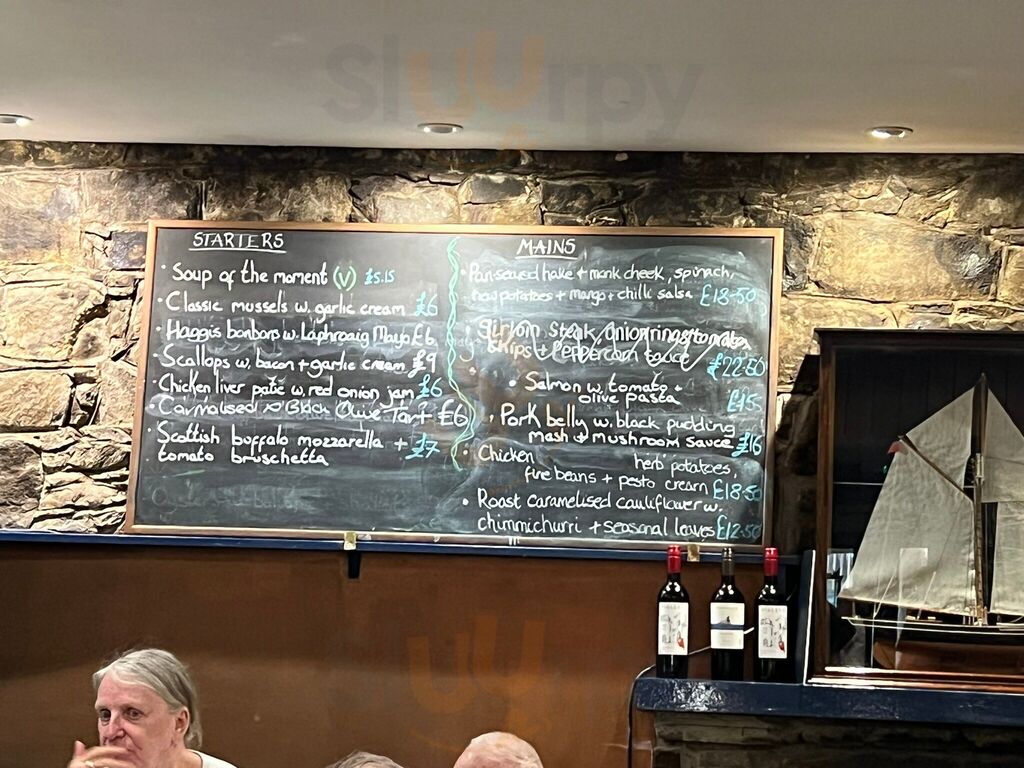 Sluurpy
STARTERS
· Soup of the moment (V) £5.15
· Classic mussels w. garlic cream £6
· Haggis bonbons w. Laphroaig Mayo £6
· Scallops w. bacon + garlic cream £9
· Chicken liver pate w. red onion jam £6
Olive Tart £6
· Scottish buffalo mozzarella + £7
tomato bruschetta
MAINS
· Pan-seared hake + monk cheek, spinach,
new potatoes + mango + chilli salsa £18-50
· Sirloin steak, onion rings, tomato,
chips + peppercorn sauce £22-50
· Salmon w. tomato +
olive pasta £15
· Pork belly w. black pudding
mash + mushroom sauce £16
· Chicken herb potatoes,
fine beans + pesto cream £18-50
· Roast caramelised cauliflower w.
chimmichurri + seasonal leaves £12-50